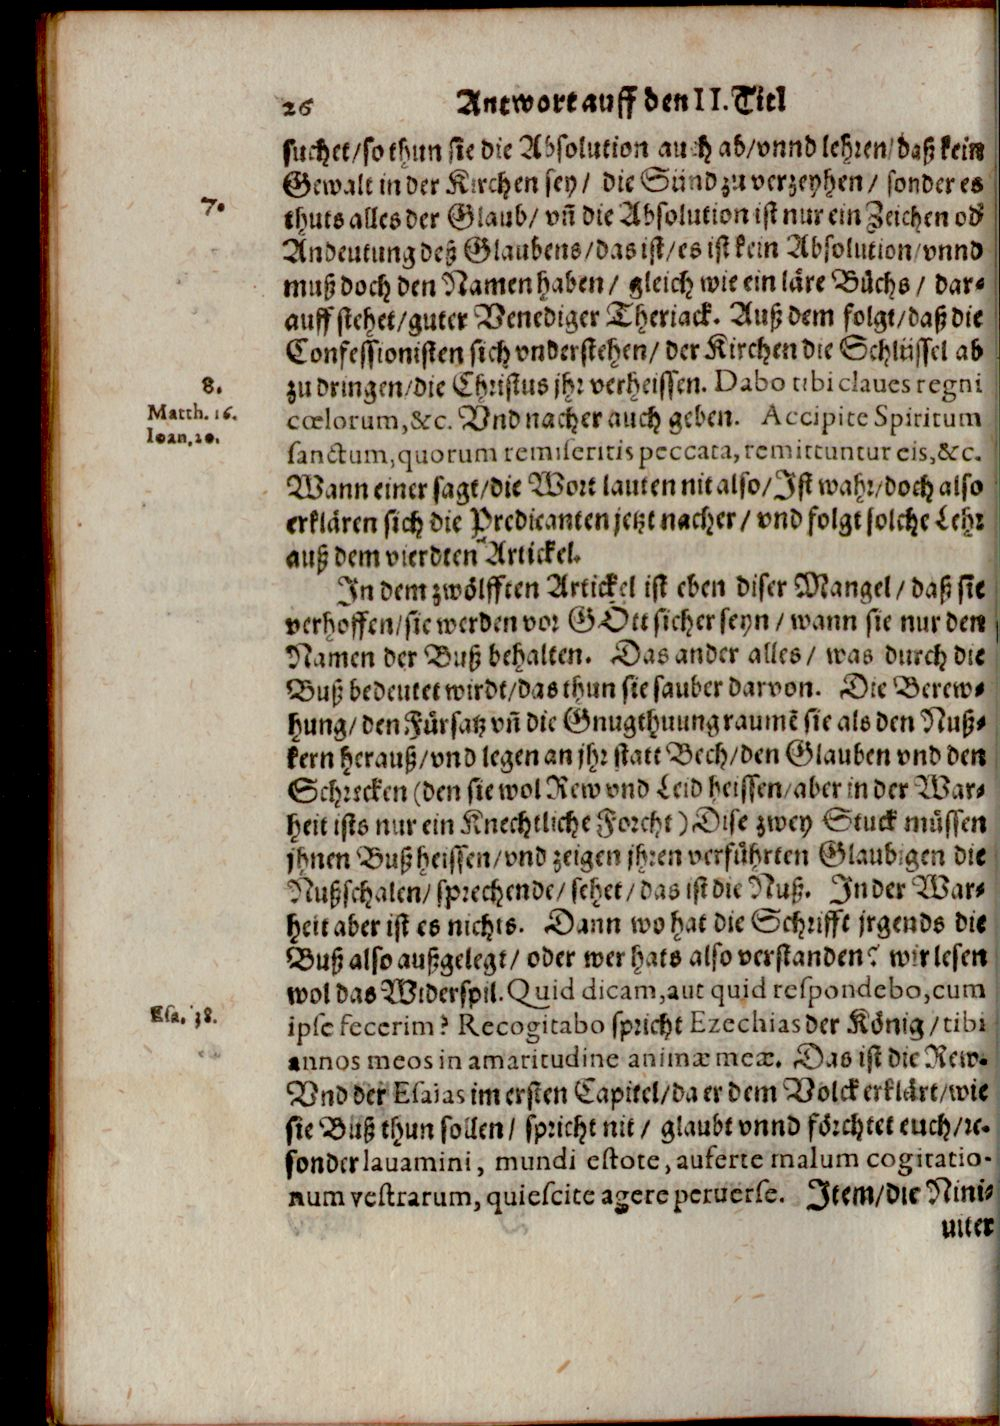 26 Antwort auff den II. Titl
suchet/so thun sie die Absolution auch ab/vnnd lehren/daß kein
Gewalt in der Kirchen sey/ die Sünd zu verzeyhen/ sonder es
7.
thuts alles der Glaub/ vñ die Absolution ist nur ein Zeichen od'
Andeutung deß Glaubens/das ist/es ist kein Absolution/vnnd
muß doch den Namen haben/ gleich wie ein läre Büchs/ dar-
auff stehet/guter Venediger Theriack. Auß dem folgt/daß die
Confessionisten sich vnderstehen/ der Kirchen die Schlüssel ab
8.
zu dringen/die Christus jhr verheissen. Dabo tibi claues regni
Matth. 16.
cœlorum,&c. Vnd nacher auch geben. Accipite Spiritum
Ioan. 20.
sanctum,quorum remiseritis peccata,remittuntur eis,&c.
Wann einer sagt/die Wort lauten nit also/Ist wahr/doch also
erklären sich die Predicanten jetzt nacher/ vnd folgt solche Lehr
auß dem vierdten Artickel.
In dem zwölfften Artickel ist eben diser Mangel/ daß sie
verhoffen/sie werden vor GOtt sicher seyn/ wann sie nur den
Namen der Buß behalten. Das ander alles/ was durch die
Buß bedeutet wirdt/das thun sie sauber darvon. Die Berew-
hung/ den Fürsatz vñ die Gnugthuung raumē sie als den Nuß-
kern herauß/vnd legen an jhr statt Bech/den Glauben vnd den
Schrecken (den sie wol Rew vnd Leid heissen/aber in der War-
heit ists nur ein Knechtliche Forcht) Dise zwey Stuck müssen
jhnen Buß heissen/vnd zeigen jhren verführten Glaubigen die
Nußschalen/ sprechende/ sehet/ das ist die Nuß. In der War-
heit aber ist es nichts. Dann wo hat die Schrifft jrgends die
Buß also außgelegt/ oder wer hats also verstanden? wir lesen
wol das Widerspil. Quid dicam,aut quid respondebo,cum
Esa. 38.
ipse fecerim? Recogitabo spricht Ezechias der König/tibi
annos meos in amaritudine animæ meæ. Das ist die Rew.
Vnd der Esaias im ersten Capitel/da er dem Volck erklärt/wie
sie Buß thun sollen/ spricht nit/ glaubt vnnd förchtet euch/ꝛc.
sonder lavamini, mundi estote, auferte malum cogitatio-
num vestrarum, quiescite agere peruerse. Item/die Nini-
uiter